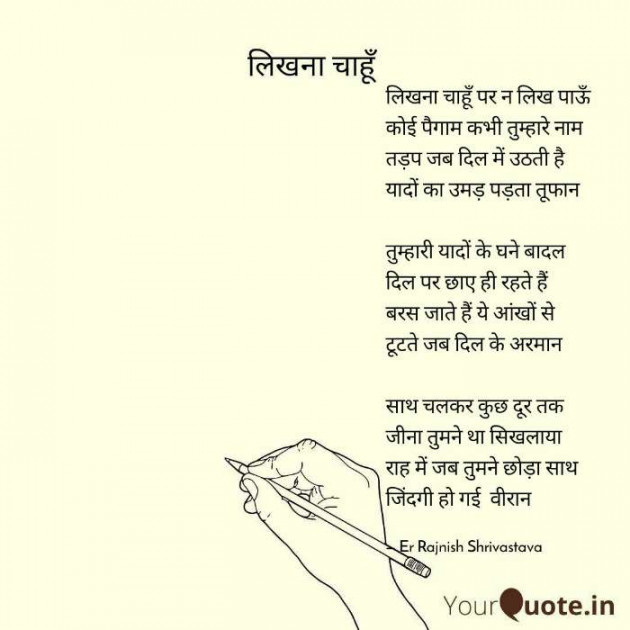 लिखना चाहूँ
लिखना चाहूँ पर न लिख पाऊँ
कोई पैगाम कभी तुम्हारे नाम
तड़प जब दिल में उठती है
यादों का उमड़ पड़ता तूफान
तुम्हारी यादों के घने बादल
दिल पर छाए ही रहते हैं
बरस जाते हैं ये आंखों से
टूटते जब दिल के अरमान
साथ चलकर कुछ दूर तक
जीना तुमने था सिखलाया
राह में जब तुमने छोड़ा साथ
जिंदगी हो गई वीरान
Er Rajnish Shrivastava
YourQuote.in